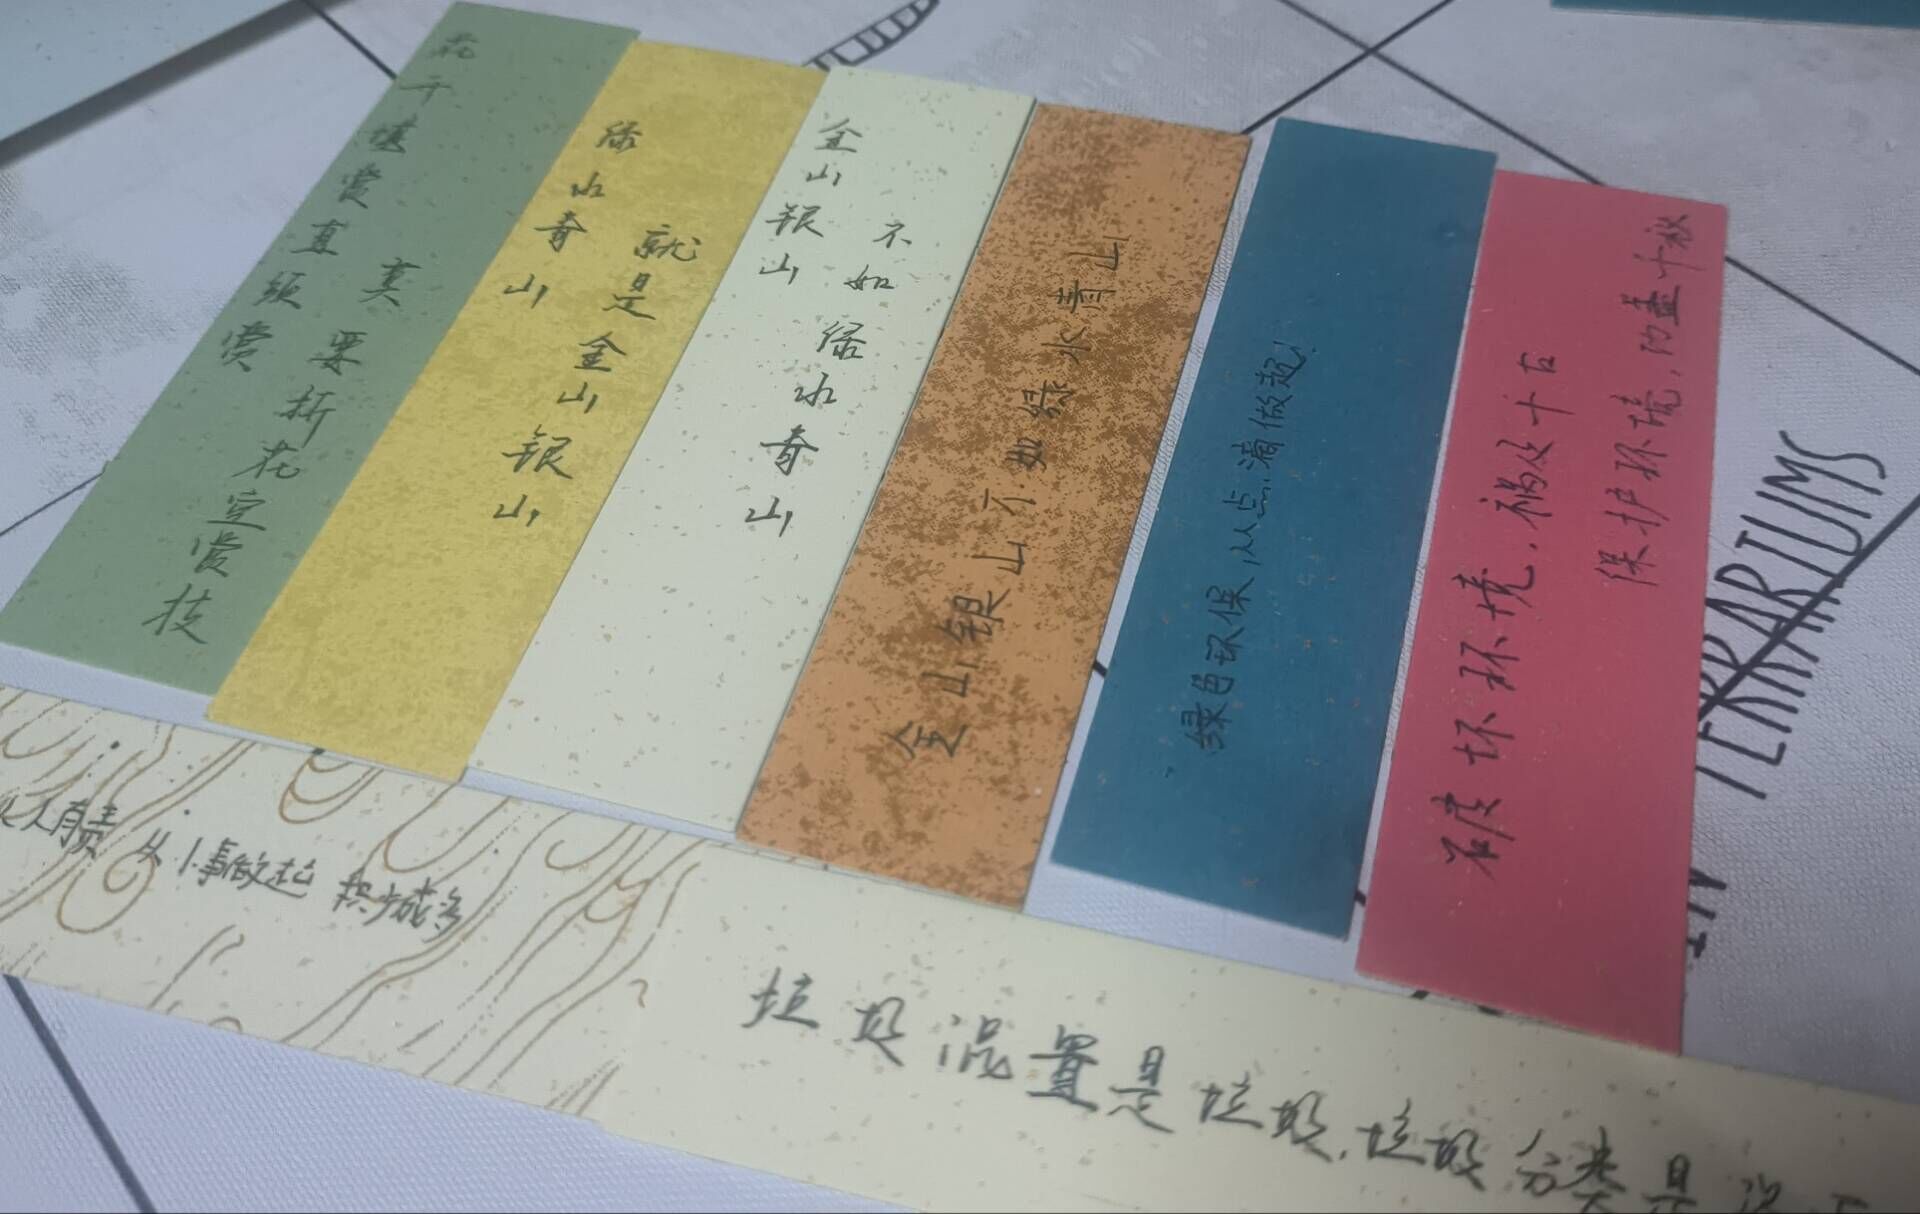 花干堪赏直须赏
莫要折花空赏技
绿水青山
就是金山银山
金山银山
不如绿水青山
金山银山不如绿水青山
绿色环保,从点滴做起!
破坏环境,祸及千古
保护环境,功盖千秋
IN TERRARIUMS
人有责 从小事做起 积少成多
垃圾混置是垃圾,垃圾分类是